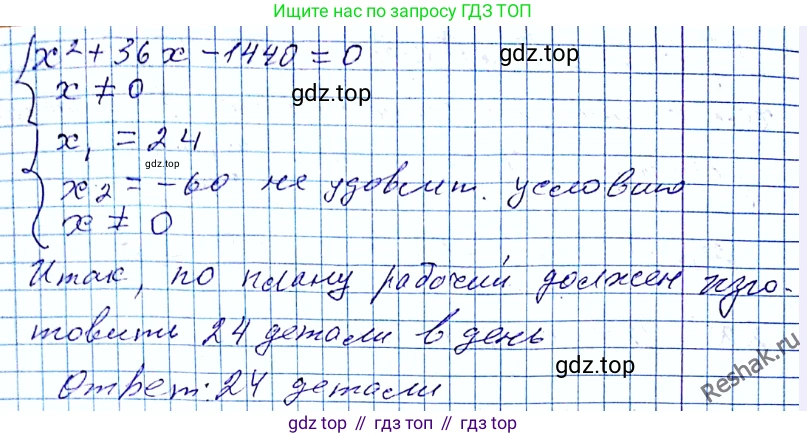 Ищите нас по запросу ГДЗ ТОП
x² + 36x - 1440 = 0
gdz.top
x ≠ 0
gdz.top
x₁ = 24
gdz.top
x₂ = -60 не удовлет. условию
x ≠ 0
Итак, по плану рабочий должен изго-
товить 24 детали в день
gdz.top
Ответ: 24 детали
Reshak.ru
gdz.top // гдз топ // gdz.top // гдз топ